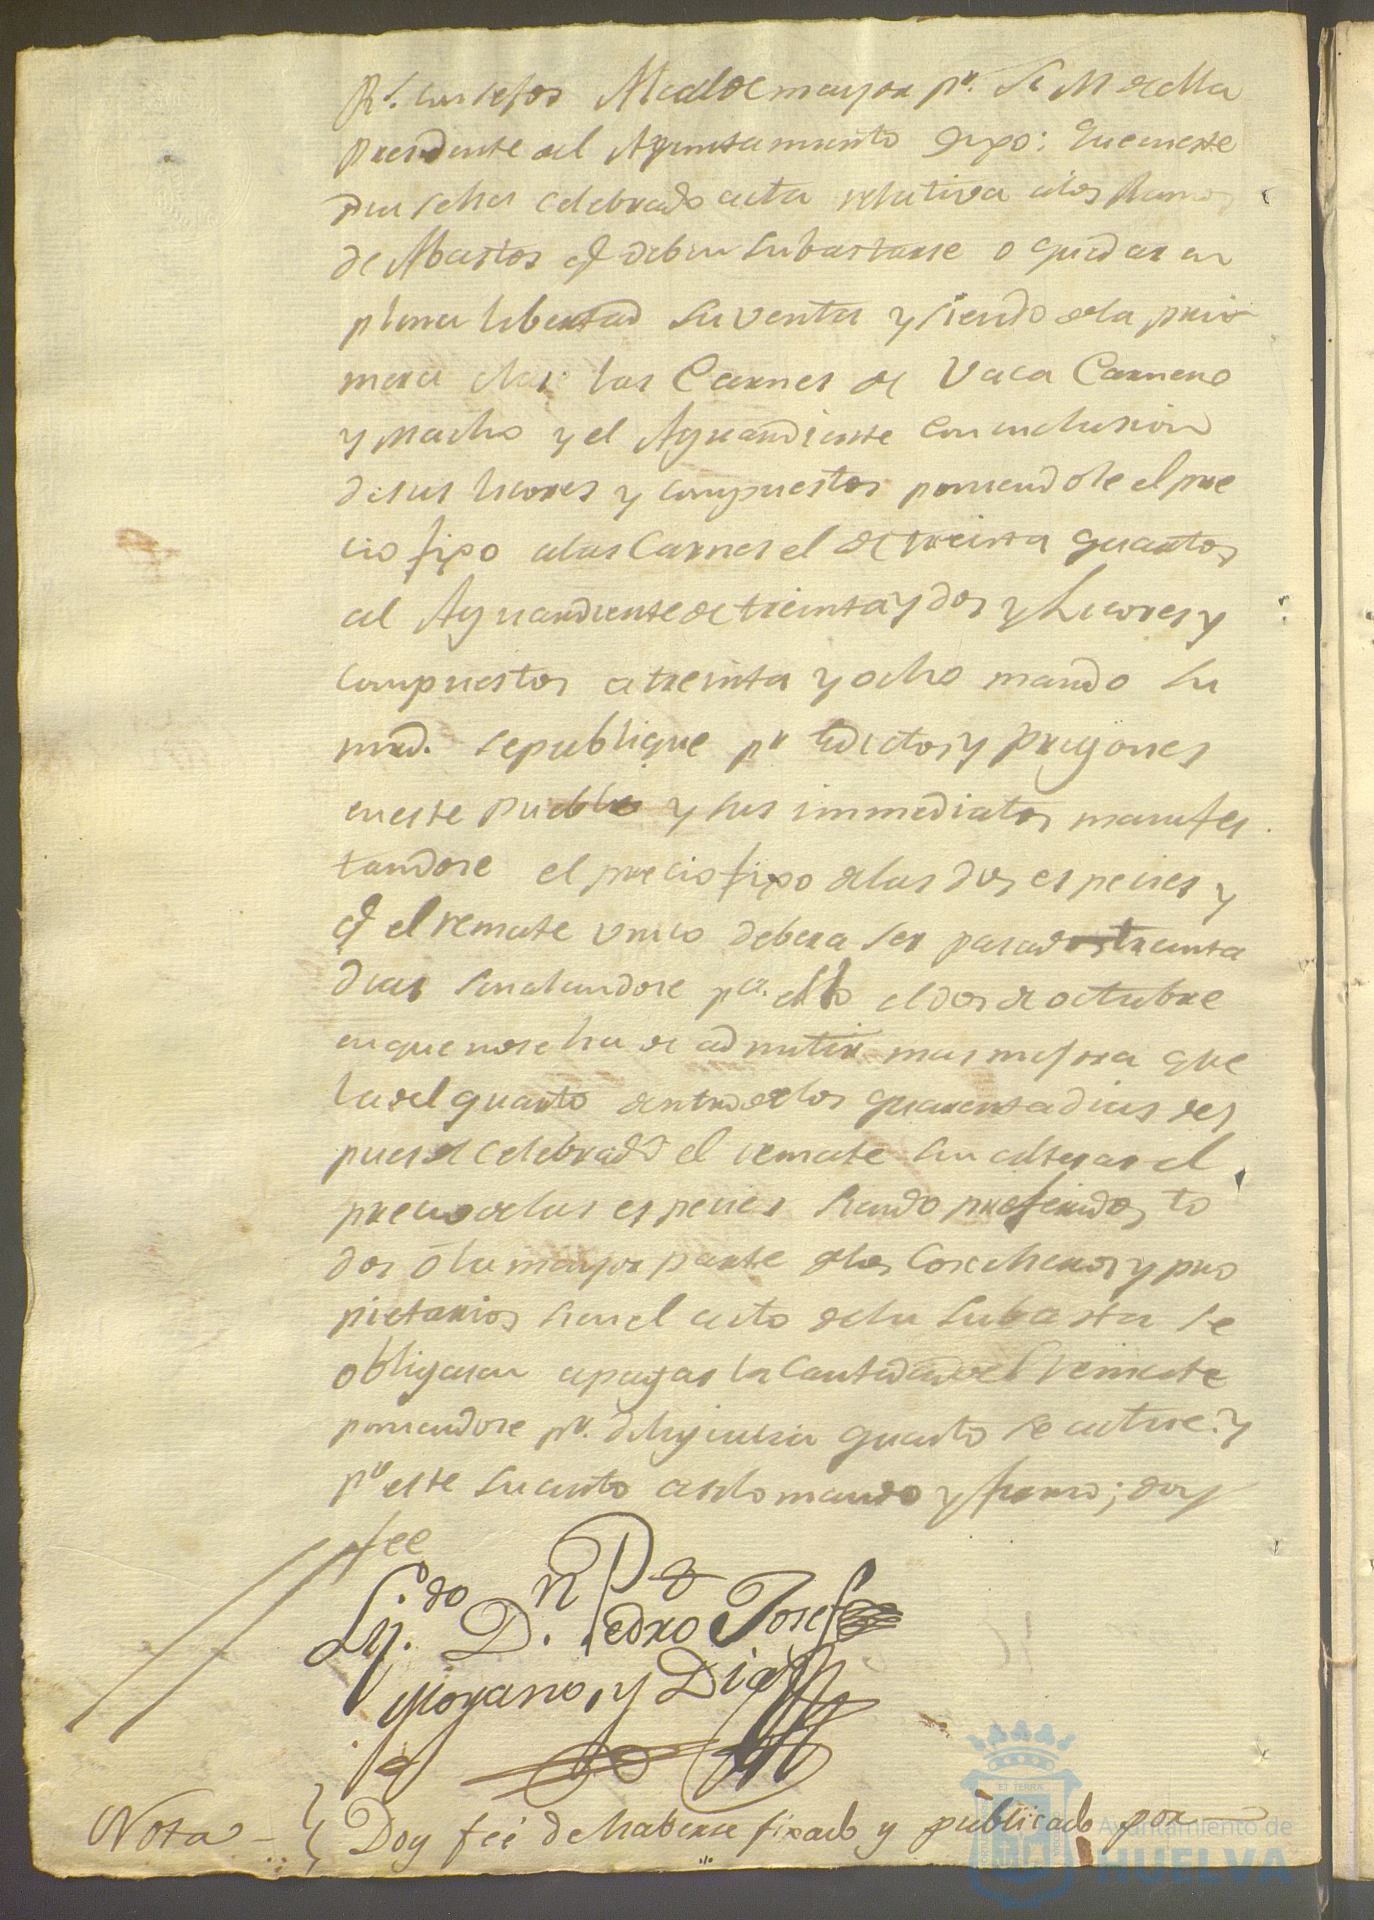 Rs. Consejos Alcalde mayor pr. S. M. de ella
Presidente del Ayuntamiento Dixo: Que en este
dia se ha celebrado acta relativa a los Ramos
de Abastos q deben subastarse o quedar en
plena libertad su venta y siendo de la pri
mera clase las Carnes de Vaca Carnero
y Macho y el Aguardiente con inclusion
de sus licores y compuestos poniendole el pre
cio fixo a las Carnes el de treinta quartos
al Aguardiente de treinta y dos y Licores y
compuestos a treinta y ocho mando su
mrd. se publique pr Edictos y pregones
en este Pueblo y sus immediatos manifes
tandose el precio fixo de las dos especies y
q el remate unico debera ser pasados treinta
dias señalandose pa. ello el dos de octubre
en que no se ha de admitir mas mejora que
la del quarto dentro de los quarenta dias des
pues de celebrado el remate sin alterar el
precio de las especies siendo preferidos to
dos ó la mayor parte de los Cosecheros y pro
pietarios si en el acto de la subasta se
obligasen a pagar la cantidad del remate
poniendose pr. diligencia quanto se actue. Y
pr este su auto asi lo mando y firmo; doy
fee
Lij.do D.n Pedro Josef
Moyano, y Diaz
Nota Doy feé de haberse fixado y publicado por
Ayuntamiento de
HUELVA